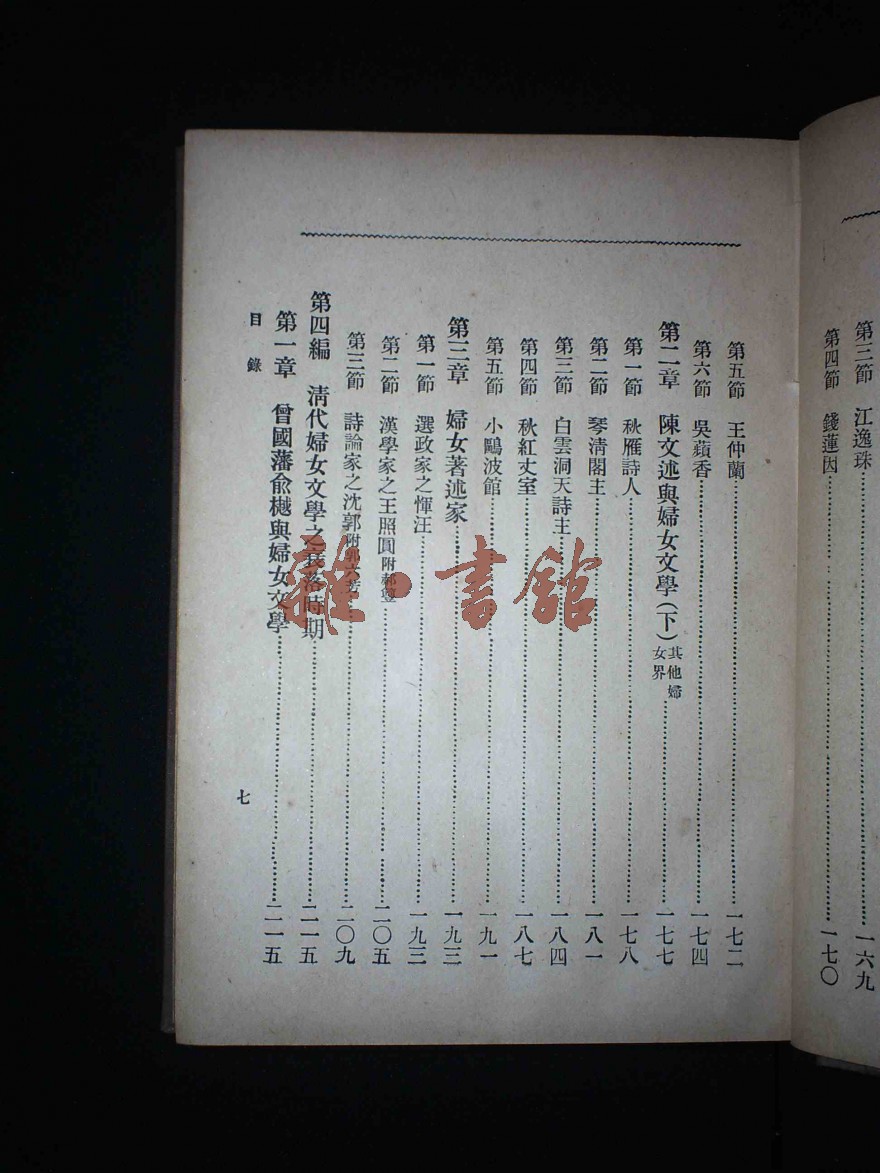 第三節 江逸珠 一六九
第四節 錢蓮因 一七〇
第五節 王仲蘭 一七二
第六節 吳蘋香 一七四
第二章 陳文述與婦女文學(下)其他婦女界 一七七
第一節 秋雁詩人 一七八
第二節 琴淸閣主 一八一
第三節 白雲洞天詩主 一八四
第四節 秋紅丈室 一八七
第五節 小鷗波館 一九一
第三章 婦女著述家 一九三
第一節 選政家之惲汪 一九三
第二節 漢學家之王照圓附郝 二〇五
第三節 詩論家之沈郭附 二〇九
第四編 淸代婦女文學之衰落時期 二一五
第一章 曾國藩俞樾與婦女文學 二一五
目錄
七
雜·書館